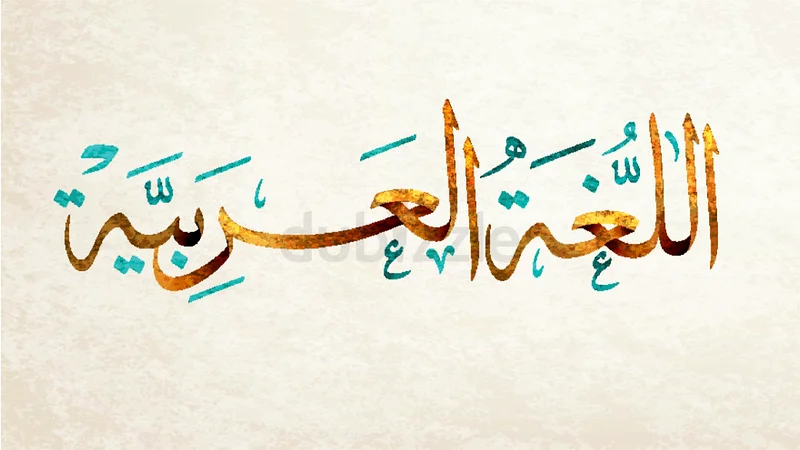 اللُّغَةُ العَرَبِيَّةُ
dubizzle